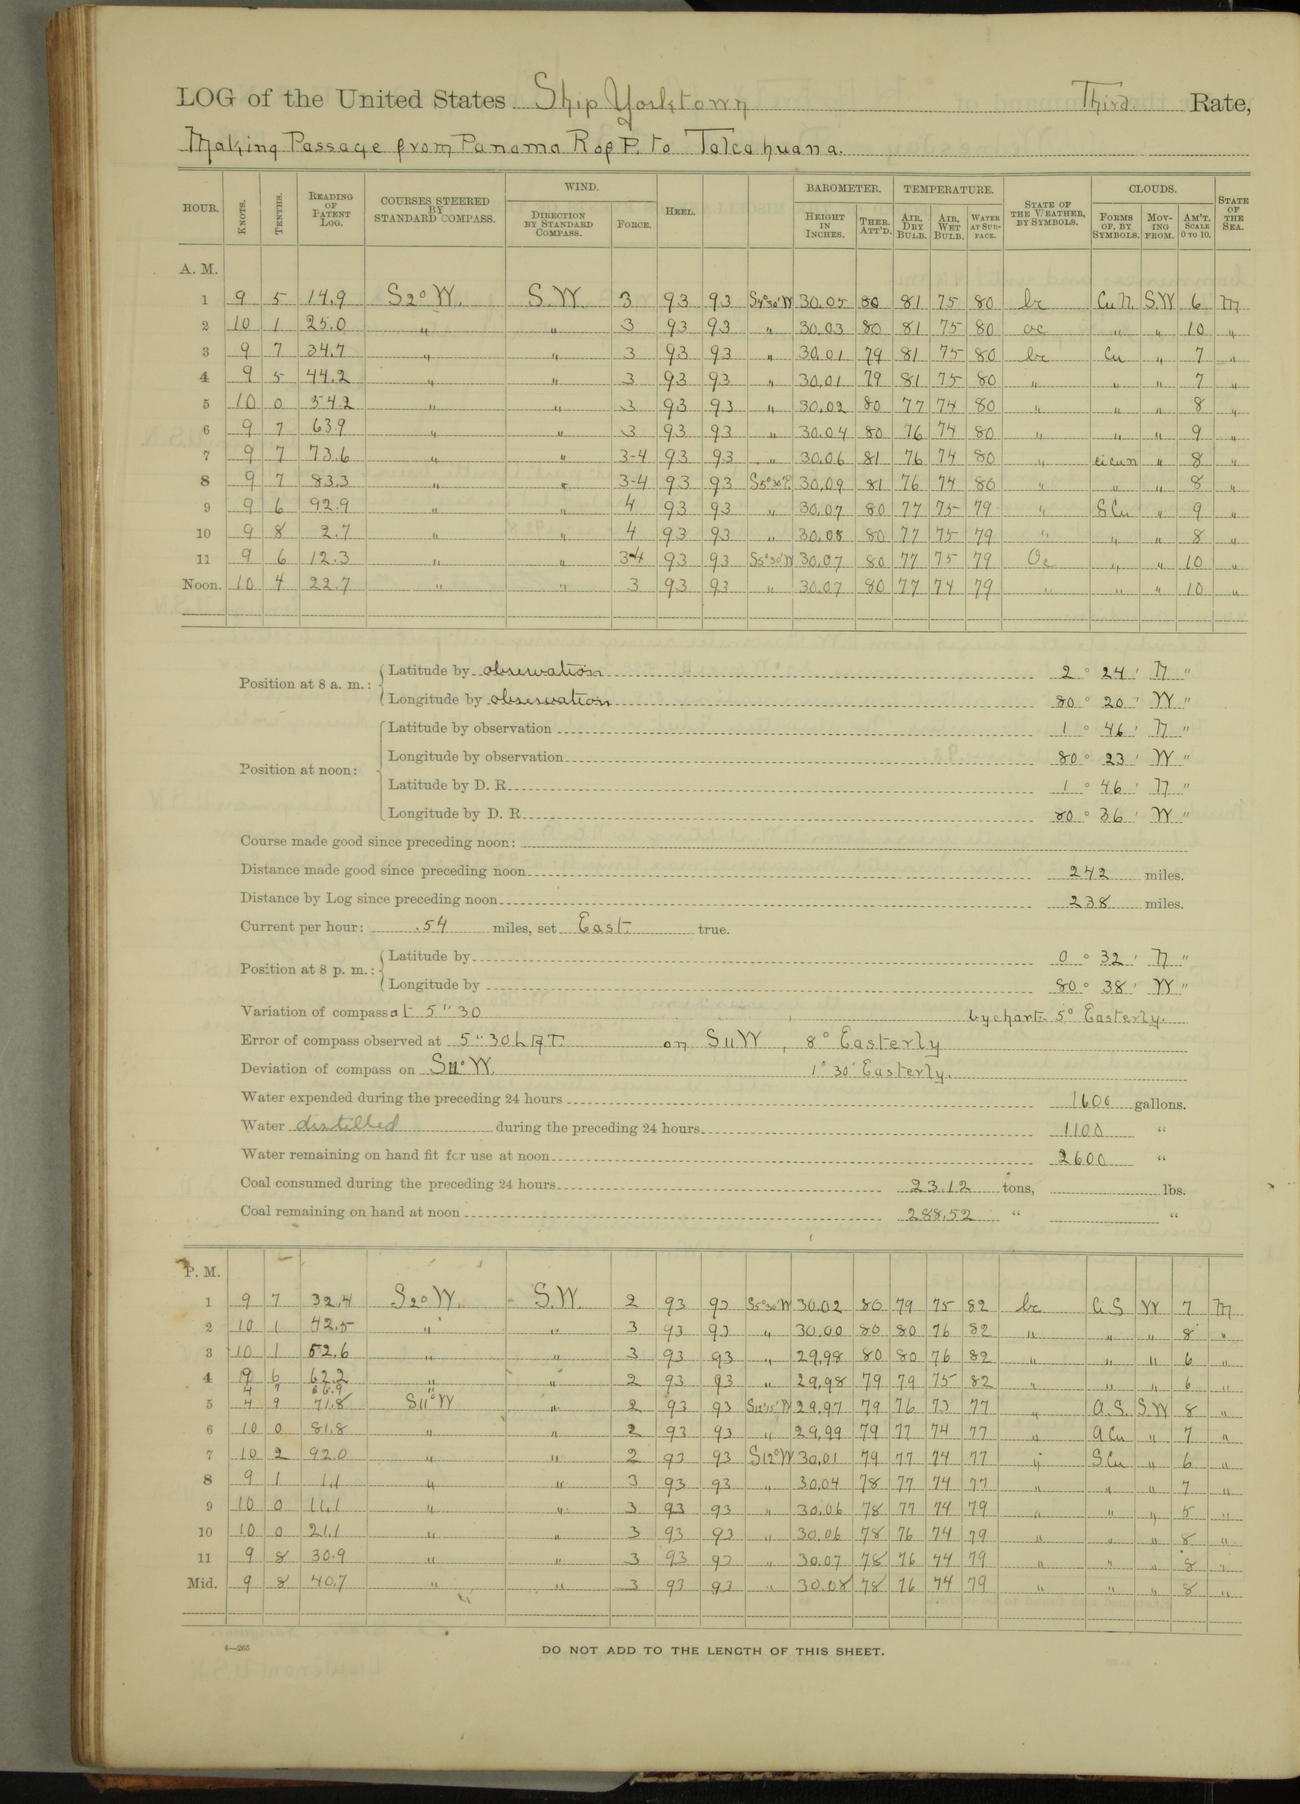 LOG of the United States Ship Yorktown Third Rate,
Making Passage from Panama R of P. to Talcahuana.
HOUR. KNOTS. TENTHS. READING OF PATENT LOG. COURSES STEERED BY STANDARD COMPASS. WIND. DIRECTION BY STANDARD COMPASS. FORCE. HEEL. BAROMETER. HEIGHT IN INCHES. THER. ATT'D. TEMPERATURE. AIR, DRY BULB. AIR, WET BULB. WATER AT SURFACE. STATE OF THE WEATHER, BY SYMBOLS. CLOUDS. FORMS OF, BY SYMBOLS. MOVING FROM. AM'T. SCALE 0 TO 10. STATE OF THE SEA.
A. M.
1 9 5 14.9 S2°W. S.W. 3 93 93 S4°30'W 30.05 80 81 75 80 bc Cu N. S.W 6 M
2 10 1 25.0 " " 3 93 93 " 30.03 80 81 75 80 oc " " 10 "
3 9 7 34.7 " " 3 93 93 " 30.01 79 81 75 80 bc Cu " 7 "
4 9 5 44.2 " " 3 93 93 " 30.01 79 81 75 80 " " " 7 "
5 10 0 54.2 " " 3 93 93 " 30.02 80 77 74 80 " " " 8 "
6 9 7 63.9 " " 3 93 93 " 30.04 80 76 74 80 " " " 9 "
7 9 7 73.6 " " 3-4 93 93 " 30.06 81 76 74 80 " cicun " 8 "
8 9 7 83.3 " " 3-4 93 93 30.09 81 76 74 80 " " " 8 "
9 9 6 92.9 " " 4 93 93 " 30.07 80 77 75 79 " S Cu " 9 "
10 9 8 2.7 " " 4 93 93 " 30.08 80 77 75 79 " " " 8 "
11 9 6 12.3 " " 3-4 93 93 S5°30'W 30.07 80 77 75 79 Oc " " 10 "
Noon. 10 4 22.7 " " 3 93 93 " 30.07 80 77 74 79 " " " 10 "
Position at 8 a. m.: Latitude by observation 2 ° 24 ' N "
Longitude by observation 80 ° 20 ' W "
Position at noon: Latitude by observation 1 ° 46 ' N "
Longitude by observation 80 ° 23 ' W "
Latitude by D. R. 1 ° 46 ' N "
Longitude by D. R. 80 ° 36 ' W "
Course made good since preceding noon:
Distance made good since preceding noon 242 miles.
Distance by Log since preceding noon 238 miles.
Current per hour: .54 miles, set East. true.
Position at 8 p. m.: Latitude by 0 ° 32 ' N "
Longitude by 80 ° 38 ' W "
Variation of compass at 5" 30 by chart. 5° Easterly.
Error of compass observed at 5" 30 L.A.T. on S11W, 8° Easterly
Deviation of compass on S11°W. 1° 30' Easterly.
Water expended during the preceding 24 hours 1600 gallons.
Water distilled during the preceding 24 hours 1100 "
Water remaining on hand fit for use at noon 2600 "
Coal consumed during the preceding 24 hours 23.12 tons, lbs.
Coal remaining on hand at noon 288.52 " "
P. M.
1 9 7 32.4 S2°W. S.W. 2 93 93 S5°30'W 30.02 80 79 75 82 bc Ci S W 7 M
2 10 1 42.5 " " 3 93 93 " 30.00 80 80 76 82 " " " 8 "
3 10 1 52.6 " " 3 93 93 " 29.98 80 80 76 82 " " " 6 "
4 9 6 62.2 " " 2 93 93 " 29.98 79 79 75 82 " " " 6 "
4 7 66.9 "
5 4 9 71.8 S11°W " 2 93 93 29.97 79 76 73 77 " A.S. S.W 8 "
6 10 0 81.8 " " 2 93 93 " 29.99 79 77 74 77 " A Cu " 7 "
7 10 2 92.0 " " 2 93 93 S12°W 30.01 79 77 74 77 " S Cu " 6 "
8 9 1 1.1 " " 3 93 93 " 30.04 78 77 74 77 " " " 7 "
9 10 0 11.1 " " 3 93 93 " 30.06 78 77 74 79 " " " 5 "
10 10 0 21.1 " " 3 93 93 " 30.06 78 76 74 79 " " " 8 "
11 9 8 30.9 " " 3 93 93 " 30.07 78 76 74 79 " " " 8 "
Mid. 9 8 40.7 " " 3 93 93 " 30.08 78 76 74 79 " " " 8 "
4—265
DO NOT ADD TO THE LENGTH OF THIS SHEET.